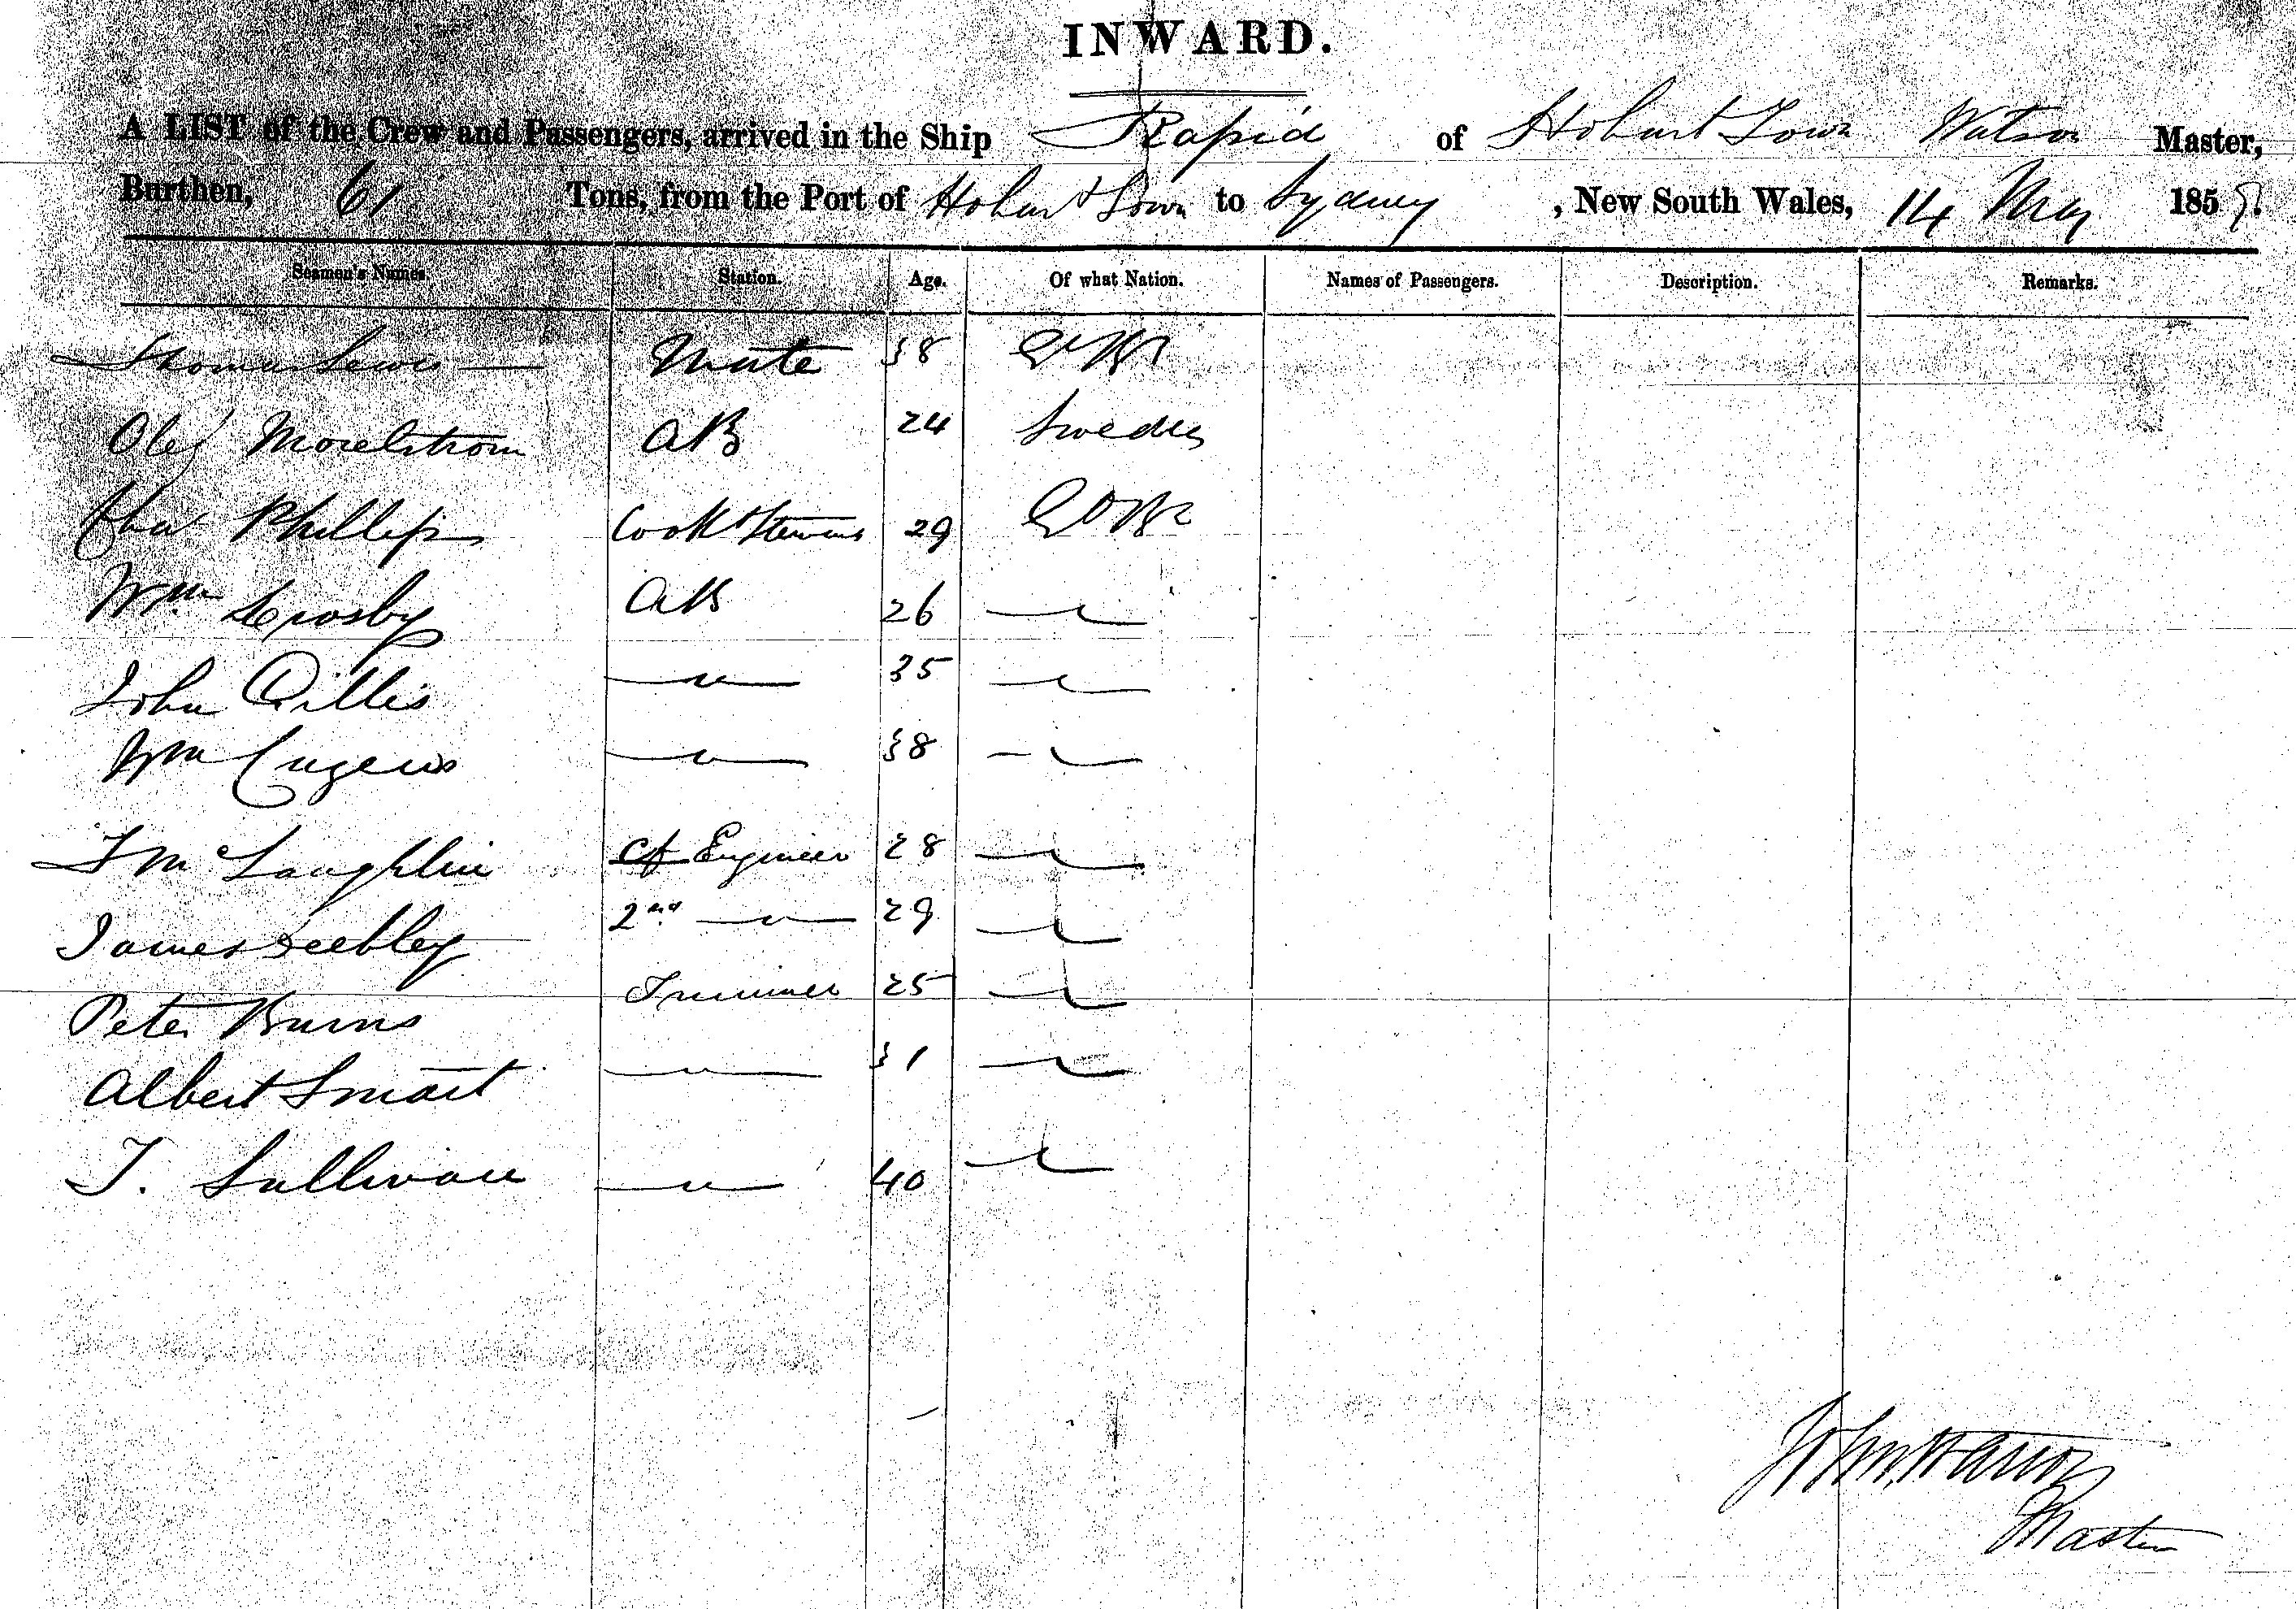 INWARD.
A LIST of the Crew and Passengers, arrived in the Ship Rapid of Hobart Town Watson Master,
Burthen, 61 Tons, from the Port of Hobart Town to Sydney , New South Wales, 14 May 185
Seamen's Names. Station. Age. Of what Nation. Names of Passengers. Description. Remarks.
Thomas Lewis Mate 38
Ole Morelstrom AB 24 Sweden
Chas Phillips Cook & Steward 29
Wm Crosby AB 26
John Gillis 〃 35
Wm 〃 38
T McLaughlin Cf Engineer 28
James Feebley 2nd 〃 29
Peter Burns Trimmer 25
Albert Smart 〃 31
T. Sullivan 〃 40
John Watson
Master